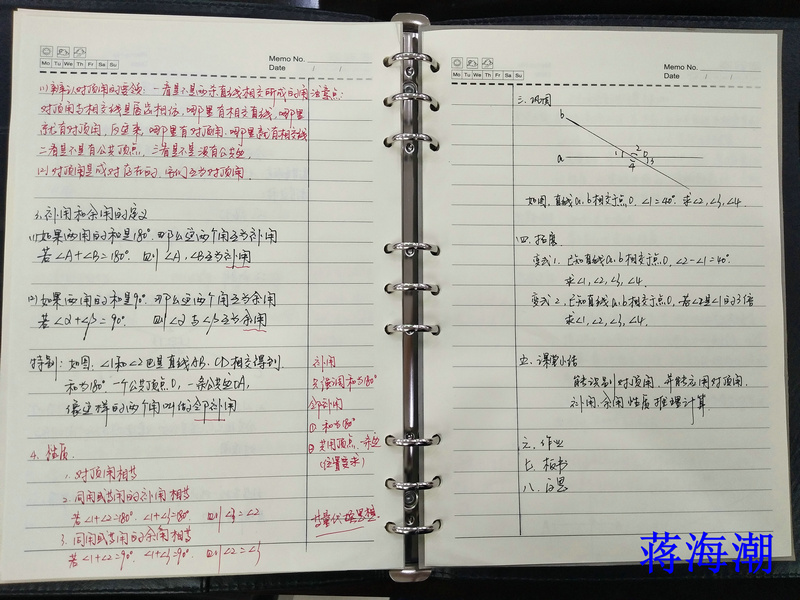 Memo No.
Mo Tu We Th Fr Sa Su
Date / /
(1) 辨认对顶角的要领:一看是不是两条直线相交所成的角
注意点:
对顶角与相交线是唇齿相依,哪里有相交直线,哪里
就有对顶角,反过来,哪里有对顶角,哪里就有相交线
二看是不是有公共顶点,三看是不是没有公共边,
(2) 对顶角是成对存在的,它们互为对顶角.
3. 补角和余角的定义
(1) 如果两角的和是180°,那么这两个角互为补角
若∠A+∠B=180°. 则∠A,∠B互为补角
(2) 如果两角的和是90°. 那么这两个角互为余角
若∠α+∠β=90°. 则∠α与∠β互为余角
特别:如图,∠1和∠2也是直线AB、CD相交得到.
和为180° 一个公共顶点O,一条公共边OA,
像这样的两个角叫做邻补角
补角
只强调和为180°
邻补角
① 和为180°
② 共用顶点,一条边
(位置要求)
4. 性质.
1. 对顶角相等
2. 同角或等角的补角相等
若∠1+∠2=180°. ∠1+∠3=180° 则∠3=∠2
3. 同角或等角的余角相等
若∠1+∠2=90°. ∠1+∠3=90°. 则∠2=∠3
等量代换思想
Memo No.
Mo Tu We Th Fr Sa Su
Date / /
三. 巩固
b
a
1 2 O 3
4
如图,直线a,b相交于点O. ∠1=40°. 求∠2,∠3,∠4.
四. 拓展
变式1. 已知直线a,b相交于点O, ∠2-∠1=40°.
求∠1,∠2,∠3,∠4.
变式2. 已知直线a,b相交于点O, 若∠2是∠1的3倍
求∠1,∠2,∠3,∠4.
五. 课堂小结
能识别对顶角,并能运用对顶角.
补角、余角性质推理计算.
六. 作业
七. 板书
八. 反思
蒋海潮